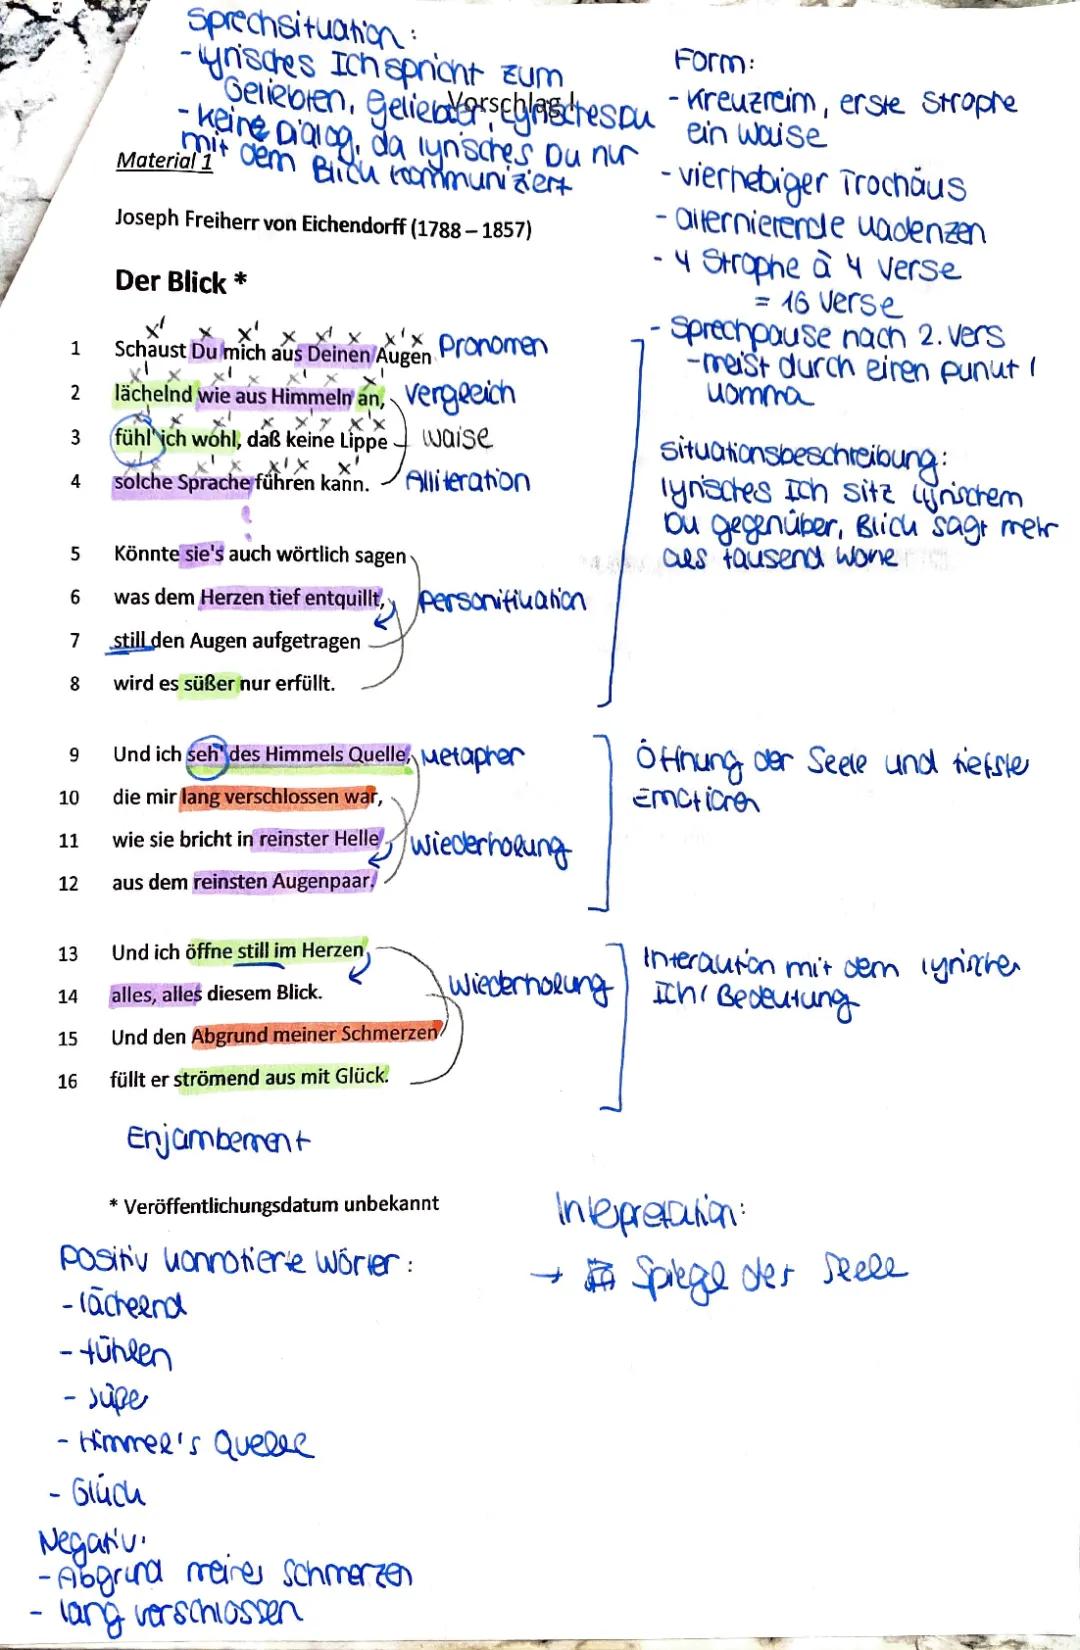 Sprechsituation:
- lyrisches Ich spricht zum
Geliebten, Geliebter, lyrisches Du
Vorschlag!
- keine Dialog, da lyrisches Du nur
mit dem Blick kommuniziert
Material 1
Joseph Freiherr von Eichendorff (1788 – 1857)
Der Blick *
1 Schaust Du mich aus Deinen Augen Pronomen
2 lächelnd wie aus Himmeln an, Vergleich
3 fühl' ich wohl, daß keine Lippe Waise
4 solche Sprache führen kann. Alliteration
5 Könnte sie's auch wörtlich sagen
6 was dem Herzen tief entquillt, Personifikation
7 still den Augen aufgetragen
8 wird es süßer nur erfüllt.
9 Und ich seh' des Himmels Quelle, Metapher
10 die mir lang verschlossen war,
11 wie sie bricht in reinster Helle Wiederholung
12 aus dem reinsten Augenpaar.
13 Und ich öffne still im Herzen,
14 alles, alles diesem Blick. Wiederholung
15 Und den Abgrund meiner Schmerzen
16 füllt er strömend aus mit Glück.
Enjambement
* Veröffentlichungsdatum unbekannt
Form:
- Kreuzreim, erste Strophe
ein Waise
- vierhebiger Trochäus
- alternierende Kadenzen
- 4 Strophe à 4 Verse
= 16 Verse
- Sprechpause nach 2. Vers
- meist durch einen Punkt /
Komma
Situationsbeschreibung:
lyrisches Ich sitz lyrischem
Du gegenüber, Blick sagt mehr
als tausend Worte
Öffnung der Seele und tiefste
Emotionen
Interaktion mit dem lyrischen
Ich / Bedeutung
Intepretation:
→ Spiegel der Seele
Positiv konnotierte Wörter:
- lächelnd
- fühlen
- süße
- Himmel's Quelle
- Glück
Negativ:
- Abgrund meines Schmerzen
- lang verschlossen